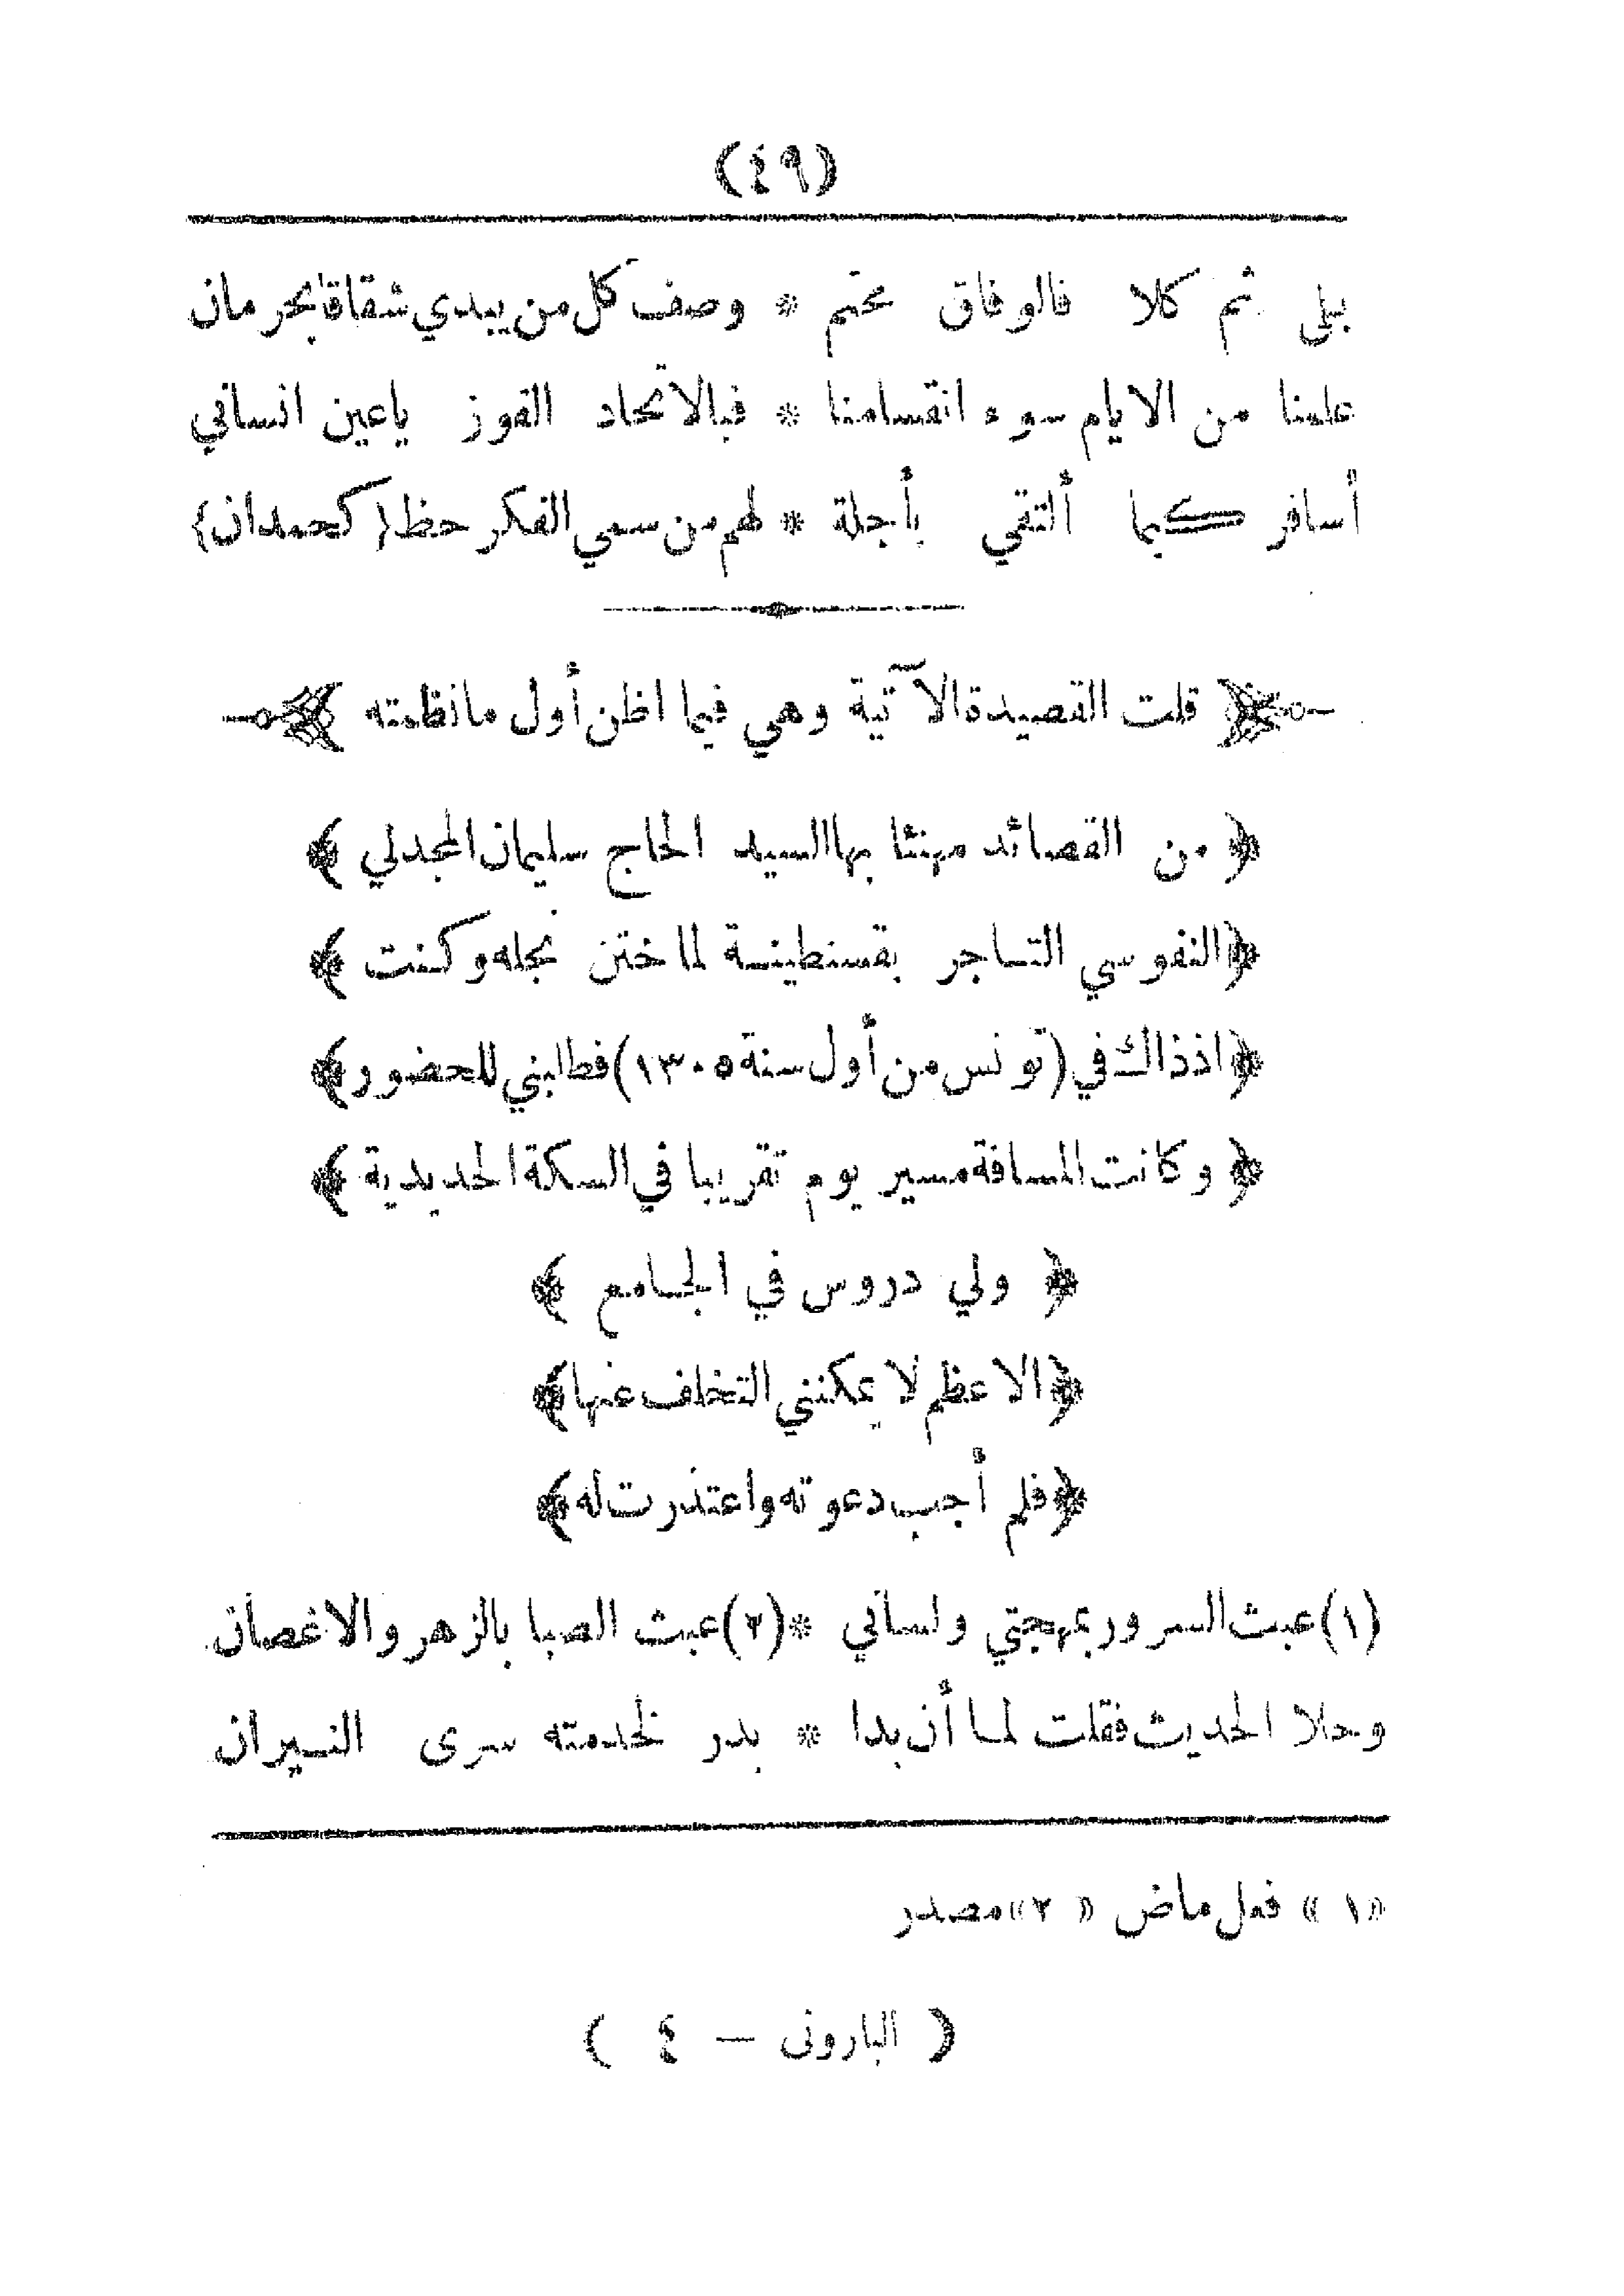 (٤٩)
بلى ثم كلا فالوفاق محتم * وصف كل من يبدي شقاقا بحرمان
علمنا من الايام سوء انقسامنا * فبالاتحاد الفوز ياعين انساني
أسافر كيما ألتقي بأجلة * لهم من سمي الفكر حظ (كحمدان)
قلت القصيدة الآتية وهي فيما اظن أول مانظمته
﴿ من القصائد مهنئا بها السيد الحاج سليمان المجدلي ﴾
﴿ النفوسي التاجر بقسنطينة لما ختن نجله وكنت ﴾
﴿ اذ ذاك في (تونس من أول سنة ١٣٠٥) فطالبني للحضور ﴾
﴿ وكانت المسافة مسير يوم تقريبا في السكة الحديدية ﴾
﴿ ولي دروس في الجامع ﴾
﴿ الاعظم لا يمكنني التخلف عنها ﴾
﴿ فلم أجب دعوته واعتذرت له ﴾
(١) عبث السرور بمهجتي ولساني * (٢) عبث الصبا بالزهر والاغصان
وحلا الحديث فقلت لما أن بدا * بدر لخدمته سرى النيران
«١» فعل ماض «٢» مصدر
( البارونى — ٤ )